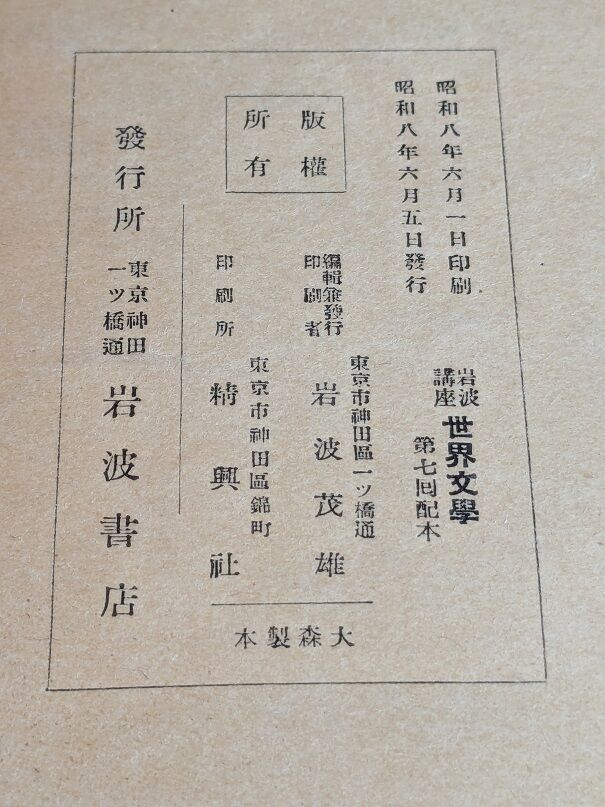 昭和八年六月一日印刷
昭和八年六月五日發行
岩波
講座
世界文學
第七囘配本
版權
所有
編輯兼發行
印刷者
東京市神田區一ツ橋通
岩波茂雄
印刷所
東京市神田區錦町
精興社
大森製本
發行所
東京神田
一ツ橋通
岩波書店